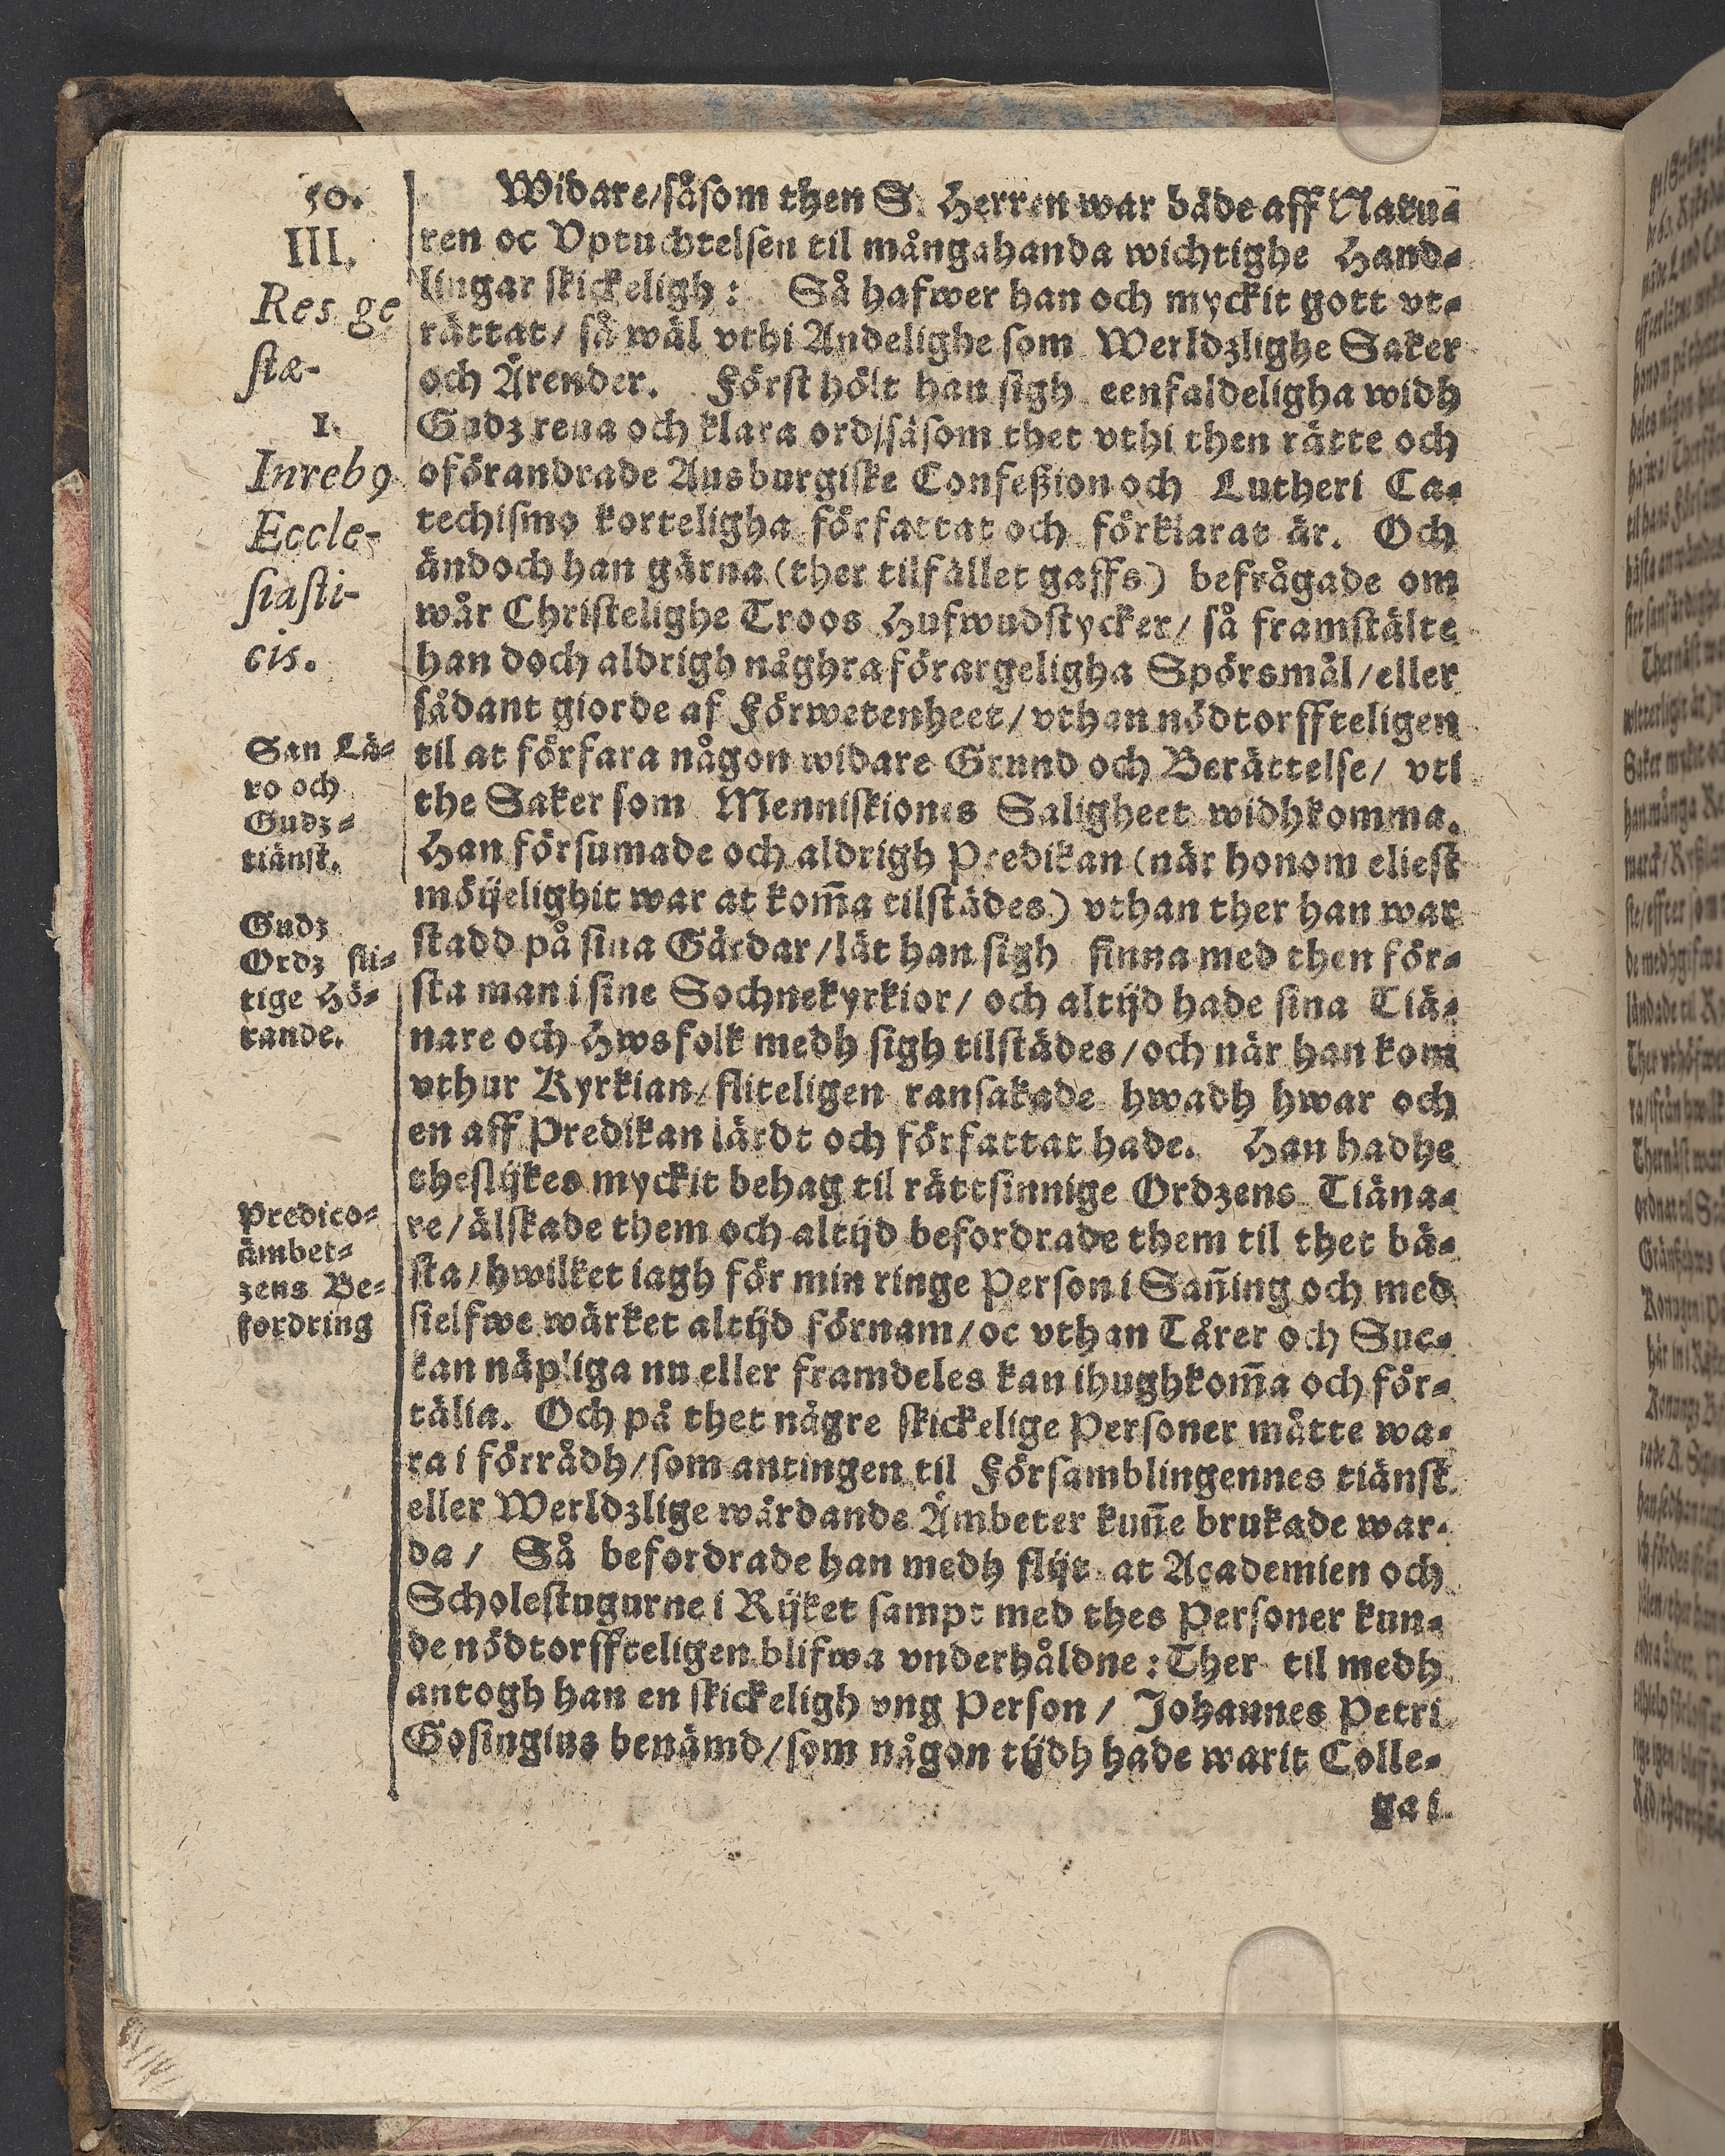 50.
III.
Res ge
stæ-
1.
Inreb9
Eccle-
siasti-
cis.
San Lä-
ro och
Gudz-
tiänst.
Gudz
Ordz fli-
tige Hö-
rande.
Predico-
ämbet-
zens Be-
fordring
Widare/såsom then S. Herren war både aff Natu-
ren oc Vptuchtelsen til mångahanda wichtighe Hand-
lingar skickeligh: Så hafwer han och myckit gott vt-
rättat/ så wäl vthi Andelighe som Werldzlighe Saker
och Ärender. Först hölt han sigh eenfaldeligha widh
Gudz rena och klara ord/såsom thet vthi then rätte och
oförandrade Ausburgiske Confeßion och Lutheri Ca-
techismo korteligha författat och förklarat är. Och
ändoch han gärna (ther tilfället gaffs) befrågade om
wår Christelighe Troos Hufwudstycker/ så framstälte
han doch aldrigh någhra förargeligha Spörsmål/eller
sådant giorde af Förwetenheet/vthan nödtorffteligen
til at förfara någon widare Grund och Berättelse/ vti
the Saker som Menniskiones Saligheet widhkomma.
Han försumade och aldrigh Predikan (när honom eliest
möijelighit war at kom̃a tilstädes) vthan ther han war
stadd på sina Gårdar/lät han sigh finna med then för-
sta man i sine Sochnekyrkior/ och altijd hade sina Tiä-
nare och Hwsfolk medh sigh tilstädes/och när han kom
vthur Kyrkian/fliteligen ransakade hwadh hwar och
en aff Predikan lärdt och författat hade. Han hadhe
theslijkes myckit behag til rättsinnige Ordzens Tiäna-
re/älskade them och altijd befordrade them til thet bä-
sta/hwilket iagh för min ringe Person i Sañing och med
sielfwe wärket altijd förnam/oc vthan Tårer och Suc-
kan näpliga nu eller framdeles kan ihughkom̃a och för-
tälia. Och på thet någre skickelige Personer måtte wa-
ra i förrådh/som antingen til Församblingennes tiänst
eller Werldzlige wårdande Ämbeter kuñe brukade war-
da/ Så befordrade han medh flijt at Academien och
Scholestugurne i Rijket sampt med thes Personer kun-
de nödtorffteligen blifwa vnderhåldne: Ther til medh
antogh han en skickeligh vng Person/ Johannes Petri
Gosingius benämd/som någon tijdh hade warit Colle-
ga i